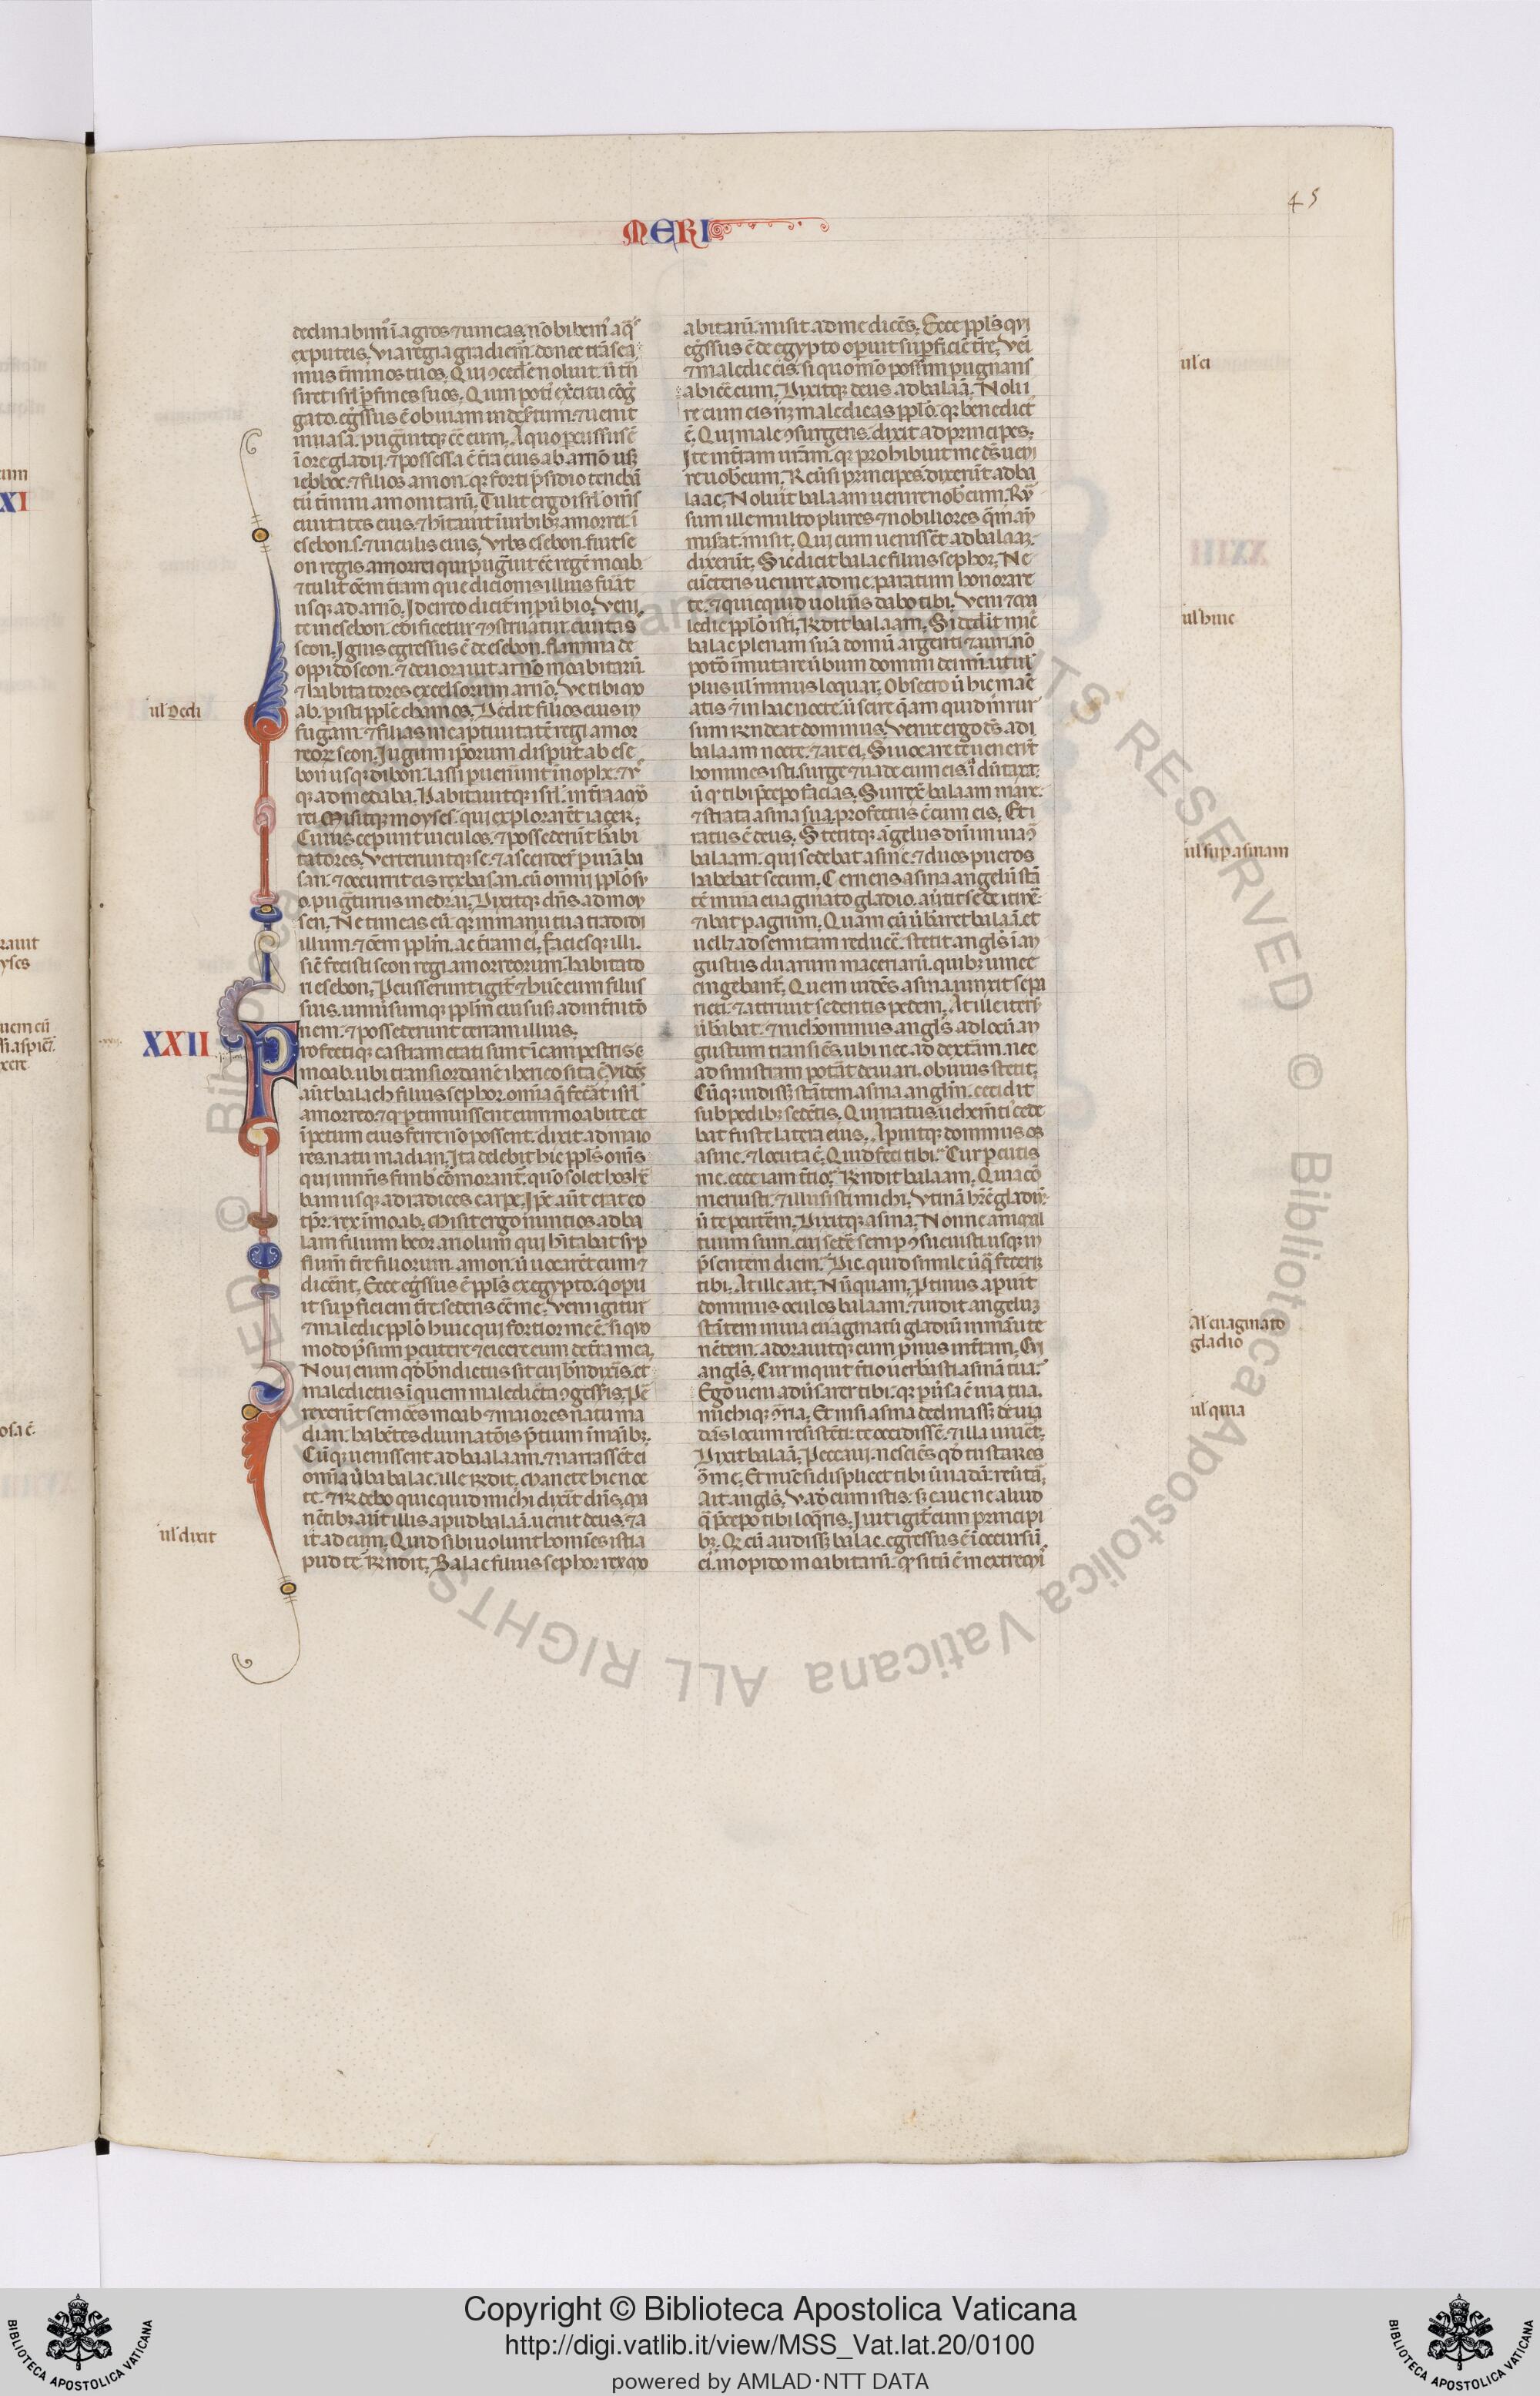 45
MERI
declinabimꝰ ī agros ⁊ uineas. nō bibemꝰ aq̄s
ex puteis. Via regia gradiem̄. donec trāsea
mus t̄minos tuos. Qui ꝯced̄e noluit. ut trā
siret isrl̄ ꝑ fines suos. Quin potiꝰ exercitu cōḡ
gato. eḡssus ē obuiam in desertum. ⁊ uenit
in iasa. pugnauitqꝫ cōtra eum. A quo ꝑcussus ē
ī ore gladii. ⁊ possessa ē t̄ra eius ab arnō usqꝫ
iebboc. ⁊ filios amon. qꝛ forti p̄sidio tenebā
tur t̄mini amonitarū. Tulit ergo isrl̄ om̄s
ciuitates eius. ⁊ hītauit ī urbibꝫ amorrei. ī
esebon. s. ⁊ uiculis eius. Vrbs esebon. fuit se
on regis amorrei qui pugnauit cōtra regē moab.
⁊ tulit oēm t̄ram que dicionis illius fuāt
usqꝫ ad arnō. Idcirco dicit̄ in ꝓūbio. Veni
te in esebon. edificetur ⁊ ꝯstruatur ciuitas
seon. Ignis egressus ē de esebon. flamma de
oppido seon. ⁊ deuorauit ar nō moabitarū.
⁊ habitatores excelsorum arnō. Ve tibi mo
ab. ꝑisti ppl̄e chamos. Dedit filios eius in
fugam. ⁊ filias in captiuitatē regi amor
reoꝝ seon. Iugum ip̄orum disꝑiit ab ese
bon usqꝫ dibon. lassi ꝑuenerunt in ophe. ⁊ us
qꝫ ad medaba. Habitauitqꝫ isrl̄ in t̄ra amor
rei. Misitqꝫ moyses. qui explorarēt iaçer.
Cuius cepunt uiculos. ⁊ possederūt habi
tatores. Verteruntqꝫ se. ⁊ ascendert̄ ꝑ uiā ba
san. ⁊ occurrit eis rex basan. cū omni ppl̄o su
o. pugnaturus in edrai. Dixitqꝫ dn̄s ad moy
sen. Ne timeas eū. qꝛ in manu tua tradidi
illum. ⁊ oēm pplm̄. ac t̄ram ei. faciesqꝫ illi.
sic fecisti seon regi amorreorum. habitato
ri esebon. Percusserunt igit̄ ⁊ hūc cum filiis
suis. uniuersumqꝫ pplm̄ eiꝰ usqꝫ ad int̄nitiō
nem. ⁊ possederunt terram illius.
XXII
Profectiqꝫ castrametati sunt ī campestribꝫ
moab. ubi trans iordanē iherico sita ē. Vidēs
aūt balach filius sephor. omīa q̄ fecāt isrl̄
amorreo. ⁊ qꝛ ꝑtimuissent eum moabite. et
īpetum eius ferre nō possent. dixit ad maio
res natu madian. Ita delebit hic ppls̄ om̄s
qui in nr̄is finibꝫ cōmorant̄. quō solet bos h̄r
bam usqꝫ ad radices carpe. Ip̄e aūt erat eo
tp̄r. rex ī moab. Misit ergo nuntios ad ba
lam filium beor. ariolum qui hītabat suꝑ
flum̄ t̄re filiorum amon. ut uocarēt eum ⁊
dicerent. Ecce eḡssus ē ppls̄ ex egypto. q oꝑu
it suꝑficiem t̄re. sedens cōtra me. Veni igitur
⁊ maledic ppl̄o huic qui fortior me ē. si quo
modo possum ꝑcutere ⁊ eicere eum de t̄ra mea.
Noui enim qd̄ bn̄dictus sit cui bn̄dixeris. et
maledictus ī quem maledicta ꝯgesseris. Per
rexerūt seniores moab ⁊ maiores natu ma
dian. habentes diuinatōis pretium ī manibꝫ.
Cūqꝫ uenissent ad baalaam. ⁊ narrassēt ei
omīa ūba balac. ille r̄ndit. Manete hic noc
te. ⁊ r̄ndebo quicquid michi dixerit dn̄s. Ma
nētibꝫ aūt illis apud balaā. uenit deus. ⁊ a
it ad eum. Quid sibi uolunt homīes isti a
pud te. R̄ndit. Balac filius sephor rex mo
abitarū. misit ad me dicēs. Ecce ppls̄ qui
eḡssus ē de egypto. oꝑuit suꝑficiē t̄re. Veni
⁊ maledic eis. si quo mō possim pugnans
abicē eum. Dixitqꝫ deus ad balaā. Noli i
re cum eis neqꝫ maledicas ppl̄o. qꝛ benedict̄
ē. Qui mane ꝯsurgens. dixit ad principes.
Ite in t̄ram ur̄am. qꝛ prohibuit me ds̄ ueni
re uob̄cum. Reūsi principes. dixerūt ad ba
laac. Noluit balaam uenire nob̄cum. Rur
sum ille multo plures ⁊ nobiliores q̄m an̄
misat. misit. Qui cum uenissēt ad balaaꝫ.
dixerūt. Sic dicit balac filius sephor. Ne
cunc̄teris uenire ad me. paratum honorare
te. ⁊ quicquid uoluis̄ dabo tibi. Veni ⁊ ma
ledic ppl̄o isti. R̄dit balaam. Si dedit̄ mic̄
balac plenam suā domū argenti ⁊ auri. nō
potō īmutare ūbum domini dei mi. ut uł
plus uł minus loquar. Obsecro ut hic mae
atis ⁊ in hac nocte. ut scire q̄am quid m̄ rur
sum r̄ndeat dominus. Venit ergo ds̄ ad
balaam nocte. ⁊ ait ei. Si uocare te uenerūt
homines isti. surge ⁊ uade cum eis. ī dūtaxat.
ut qꝛ tibi p̄cepo facias. Surrex̄ balaam mane.
⁊ strata asina sua. profectus ē cum eis. Et i
ratus ē deus. Stetitqꝫ āgelus dn̄i in uia ꝯ̄
balaam. qui sedebat asine. ⁊ duos pueros
habebat secum. Cernens asina angelū stā
tē in uia euaginato gladio. auertit se de itin̄e.
⁊ ibat ꝑ agrum. Quam cū ūbaret balaā. et
uellꝫ ad semitam reducē. stetit angls̄ ī an
gustiis duarum maceriarū. quibꝫ uinee
cingebant̄. Quem uidēs asina. iunxit se pari
eti. ⁊ attriuit sedentis pedem. At ille iterꝫ
ūbabat. ⁊ nichominus angls̄ ad locū an
gustum transiēs. ubi nec ad dextam̄. nec
ad sinistram potāt deuiari. obuius stetit.
Cūqꝫ uidissꝫ stantem asina anglm̄. cecidit
sub pedibꝫ sedētis. Qui iratus. uehem̄tiꝰ cede
bat fuste latera eius. Aꝑuitqꝫ dominus os
asine. ⁊ locuta ē. Quid feci tibi. Cur ꝑcutis
me. ecce iam t̄tio. R̄ndit balaam. Quia cō
meruisti. ⁊ illusisti michi. Vtinā hr̄ē gladiū.
ut te ꝑcutēm. Dixitqꝫ asina. Nonne animal
tuum sum. cui sedē semꝑ ꝯsueuisti. usqꝫ in
p̄sentem diem. Dic. quid simile ūqᷓ fecerīꝫ
tibi. At ille ait. Nūquam. Ptinus aꝑuit
dominus oculos balaam. ⁊ uidit angeluꝫ
stātem in uia euaginatū gladiū in manū te
nētem. adorauitqꝫ eum pronus in t̄ram. Cui
angls̄. Cur inquit t̄tio uerbasti asinā tuā.
Ego ueni adūsarer tibi. qꝛ ꝑūsa ē uia tua.
michiqꝫ ꝯ̄ria. Et nisi asina declinassꝫ de uia
dās locum resistēti. te occidissē. ⁊ illa uiuēt.
Dixit balaā. Peccaui. nesciēs qd̄ tu stares
ꝯ̄ me. Et nūc si displicet tibi ut uadā. reūtar̄.
Ait angls̄. Vad̄ cum istis. sꝫ caue ne aliud
q̄ p̄cepo tibi loq̄ris. Iuit igit̄ cum principi
bꝫ. Qꝛ cū audissꝫ balac. egressus ē ī occursū
ei. in opido moabitarū. qꝛ sitū ē in extremi
uł Dedi
uł dixit
uł ei
uł huic
uł suꝑ asinam
Al̄ euaginato
gladio
uł quia
XI
Copyright © Biblioteca Apostolica Vaticana
http://digi.vatlib.it/view/MSS_Vat.lat.20/0100
powered by AMLAD·NTT DATA
BIBLIOTECA APOSTOLICA VATICANA
BIBLIOTECA APOSTOLICA VATICANA
© Biblioteca Apostolica Vaticana ALL RIGHTS RESERVED